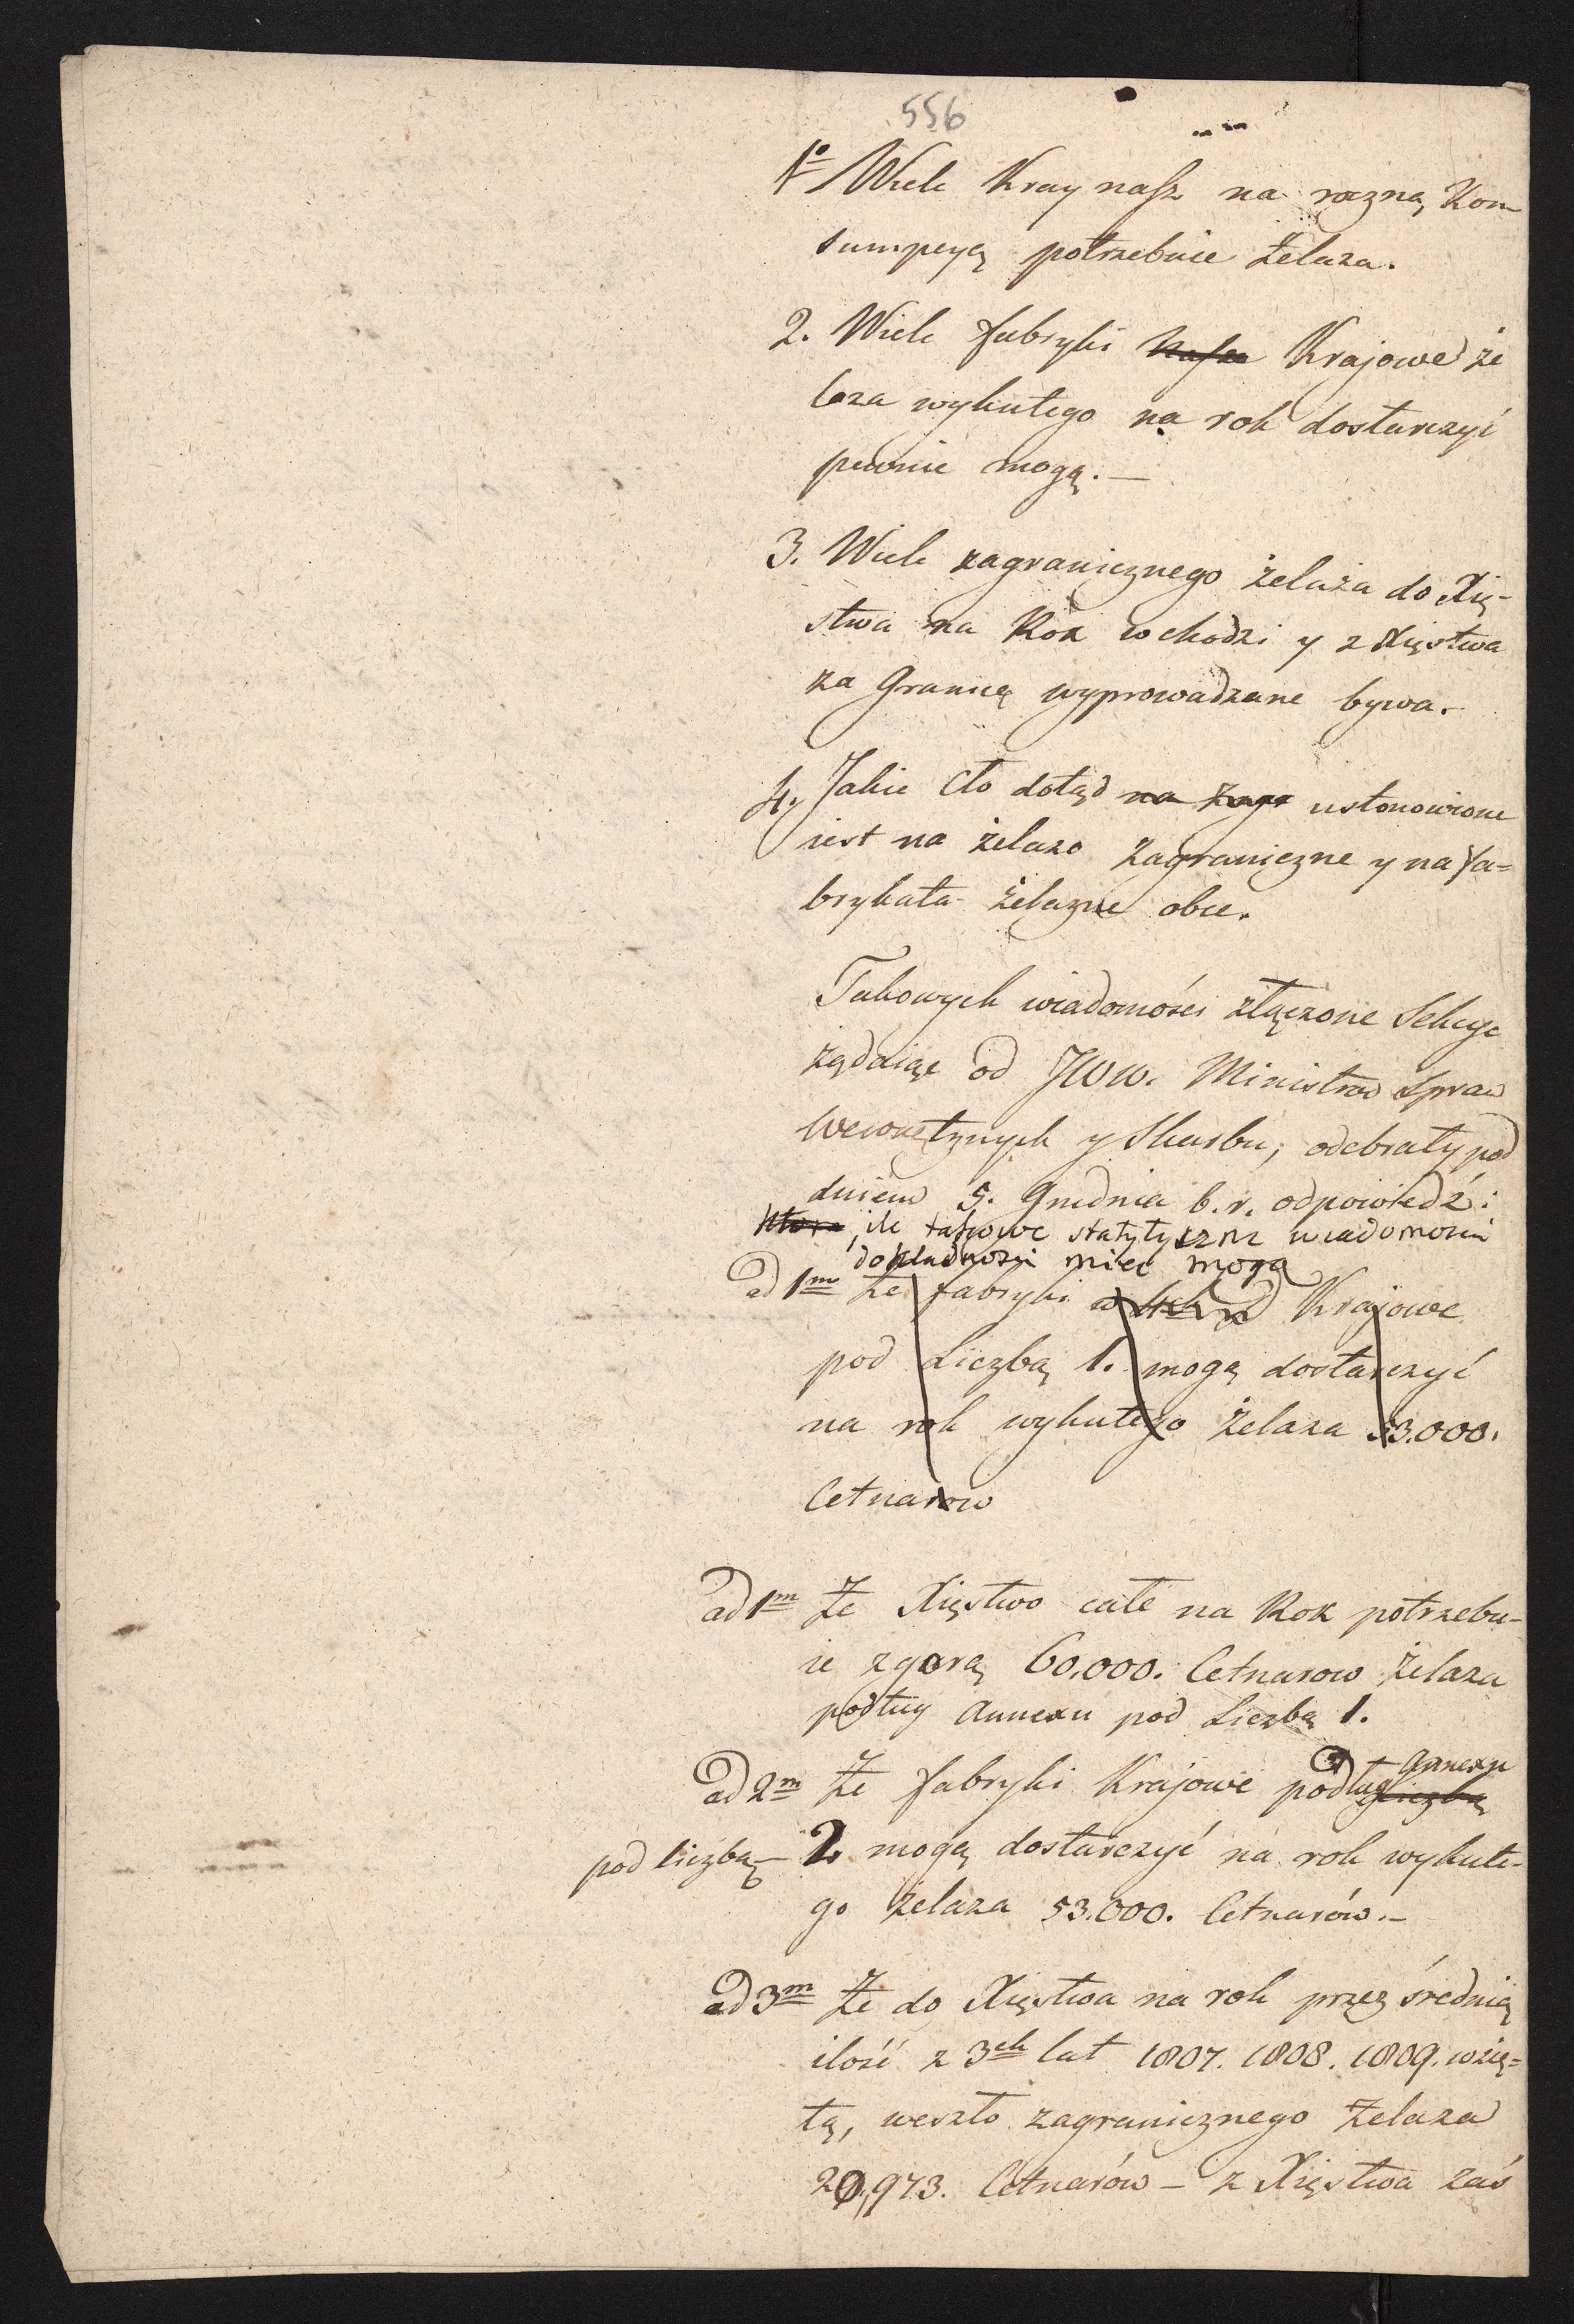 556
1º Wiele Kray nasz na roczną Kon
sumpcyą potrzebuie żelaza.
2. Wiele fabryki nasze Krajowe że
laza wykutego na rok dostarczyć
pewnie mogą.—
3. Wiele zagranicznego żelaza do Xię-
stwa na Rok wchodzi y z Xięstwa
za Granicę wyprowadzane bywa.-
4. Jakie Cło dotąd na zagr ustanowione
iest na żelazo zagraniczne y na fa=
brykata żelazne obce.
Takowych wiadomości złączone Sekcye
żądaiąc od JWW. Ministrów Spraw
Wewnętznych y Skarbu, odebrały pod
dniem 5. Grudnia b. r. odpowiedź:
która, ile takowe statystyczne wiadomości
dokładności mieć mogą
ad 1mo Że fabryki Krajowe
pod Liczbą 1. mogą dostarczyć
na rok wykutego żelaza 53.000.
Cetnarow
ad 1m Że Xięstwo całe na Rok potrzebu-
ie zgorą 60,000. Cetnarow żelaza
podług Annexu pod Liczbą 1.
ad 2m Że fabryki Krajowe podług Liczbą Annexu
pod liczbą 2. mogą dostarczyć na rok wykute-
go żelaza 53.000. Cetnarów.-
ad 3m Że do Xięstwa na rok przez średnią
ilość z 3ch lat 1807. 1808. 1809. wzię=
tą, weszło zagranicznego żelaza
20,973. Cetnarów — z Xięstwa zaś